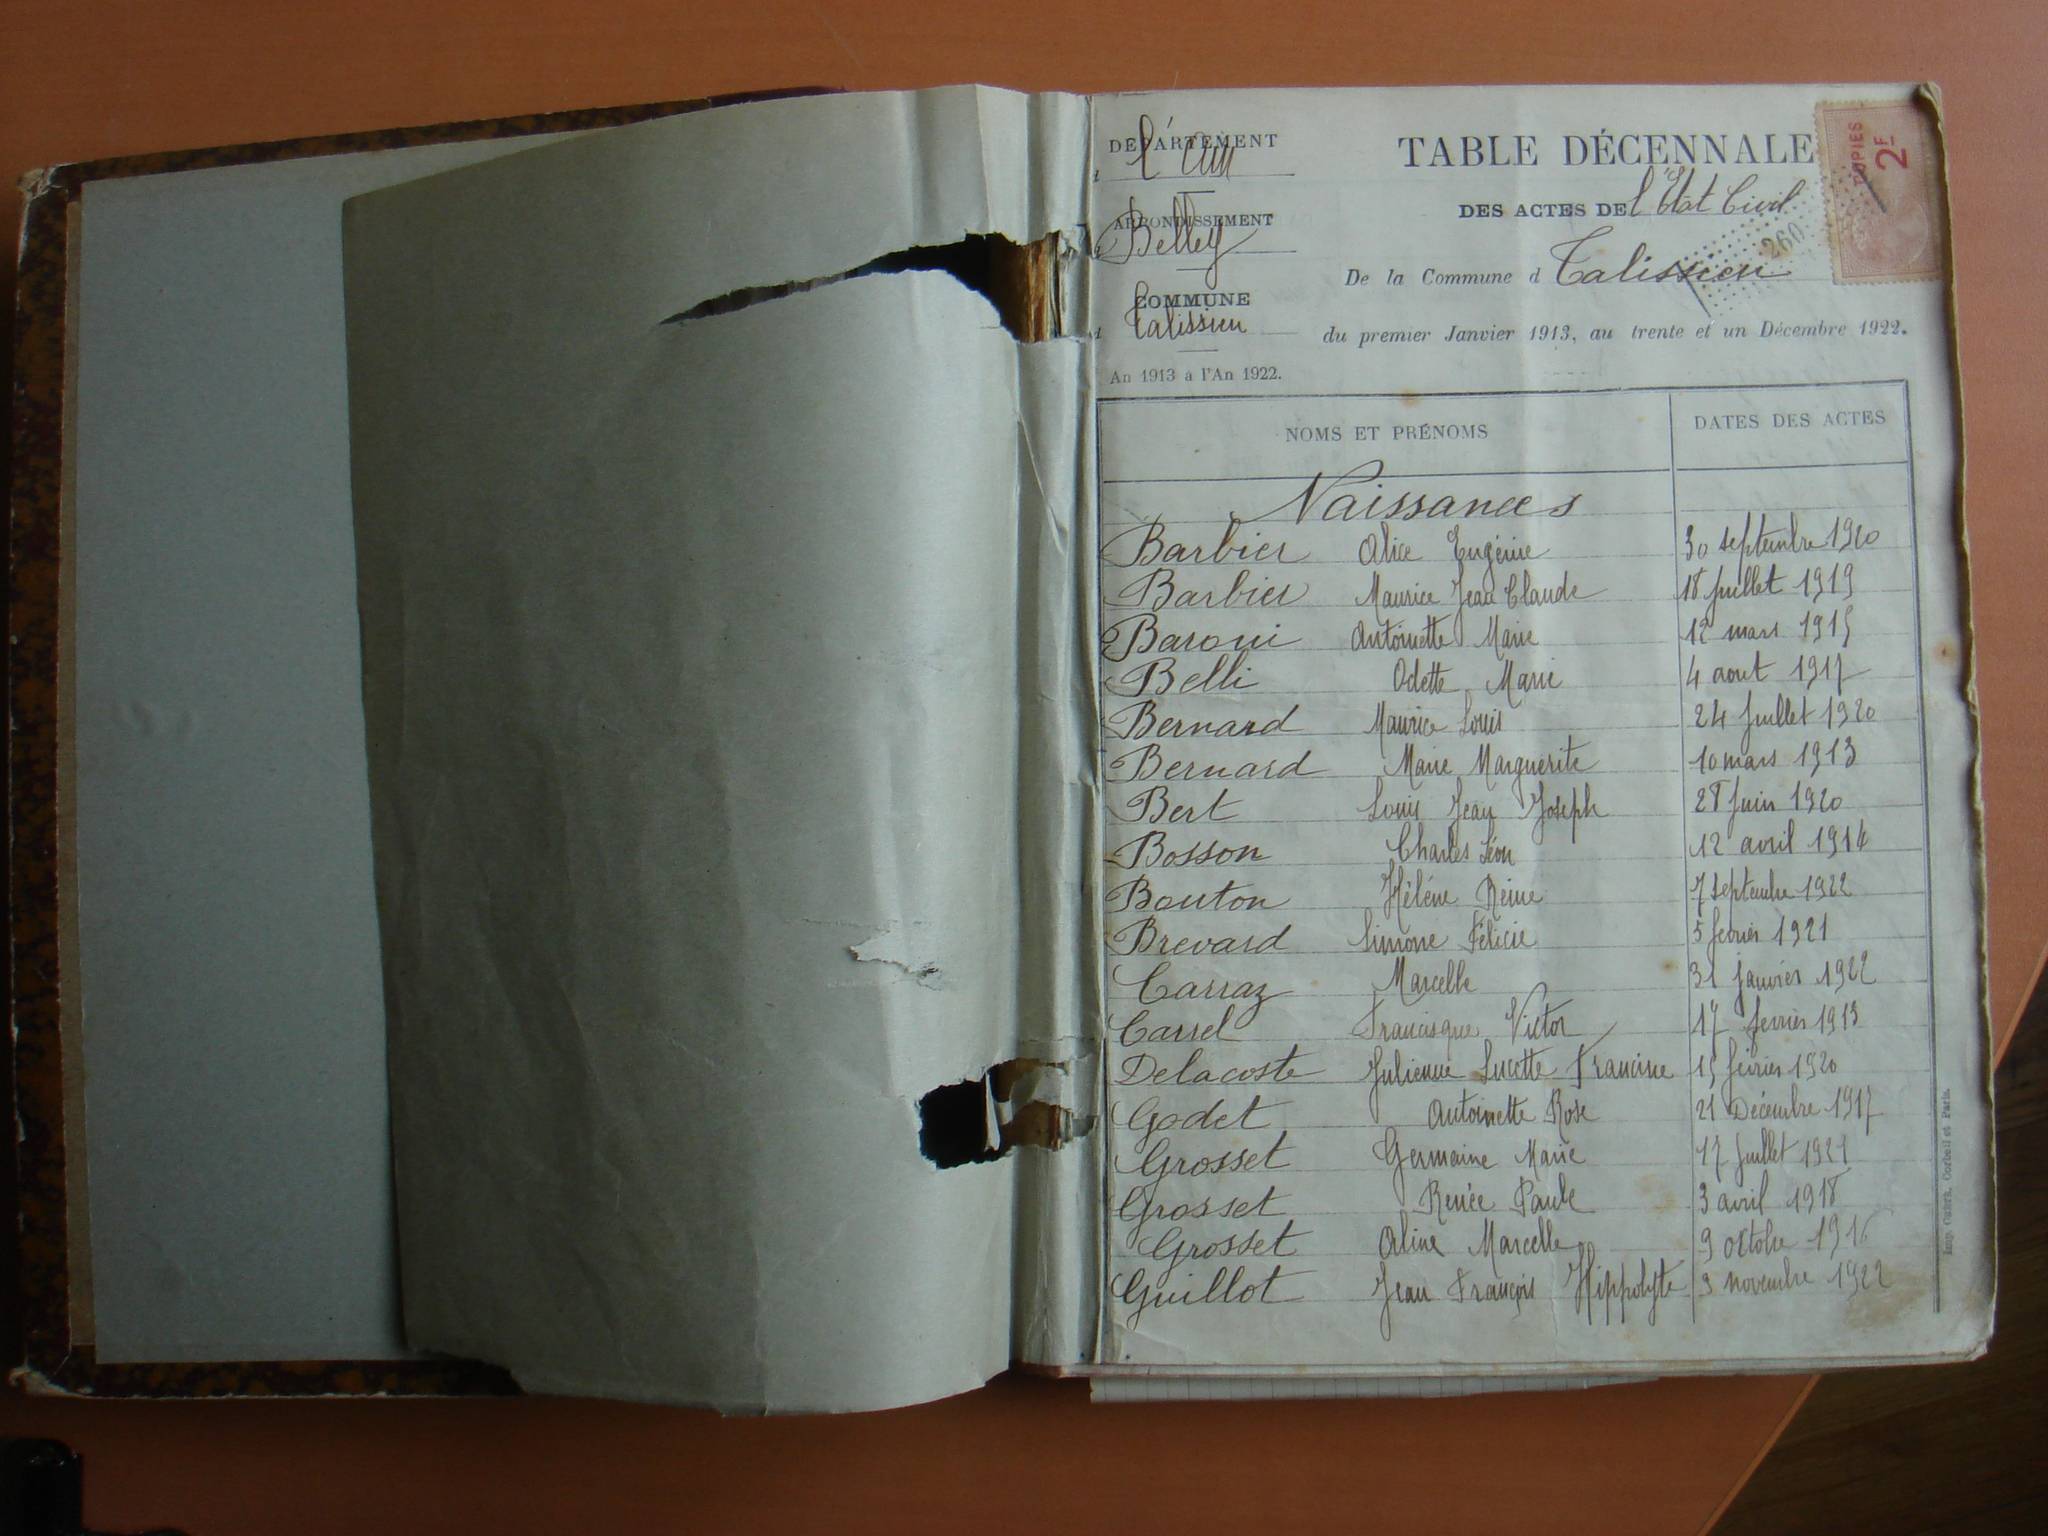 DÉPARTEMENT
d l'Ain
ARRONDISSEMENT
d Belley
COMMUNE
d Talissieu
An 1913 à l'An 1922.
TABLE DÉCENNALE
DES ACTES DE l'État Civil
De la Commune d Talissieu
du premier Janvier 1913, au trente et un Décembre 1922.
COPIES
2F
260
NOMS ET PRÉNOMS DATES DES ACTES
Naissances
Barbier Alice Eugénie 30 septembre 1920
Barbier Maurice Jean Claude 18 Juillet 1919
Baroni Antoinette Marie 12 mars 1915
Belli Odette Marie 4 aout 1917
Bernard Maurice Louis 24 Juillet 1920
Bernard Marie Marguerite 10 mars 1913
Bert Louis Jean Joseph 28 Juin 1920
Bosson Charles Léon 12 avril 1914
Bouton Hélène Reine 7 septembre 1922
Brevard Simone Félicie 5 février 1921
Carraz Marcelle 31 janvier 1922
Carrel Francisque Victor 17 février 1913
Delacoste Julienne Lucette Francine 15 février 1920
Godet Antoinette Rose 21 Décembre 1917
Grosset Germaine Marie 17 Juillet 1921
Grosset Renée Paule 3 avril 1918
Grosset Aline Marcelle 9 octobre 1916
Guillot Jean François Hippolyte 3 novembre 1922
Corbeil et Paris.